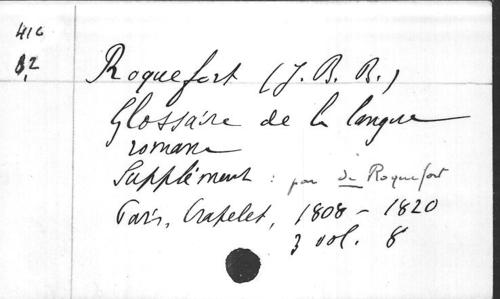 416
B,2
Roquefort (J. B. B.)
Glossaire de la langue
romane
Supplément : par de Roquefort
Paris, Crapelet, 1808 - 1820
3 vol. 8